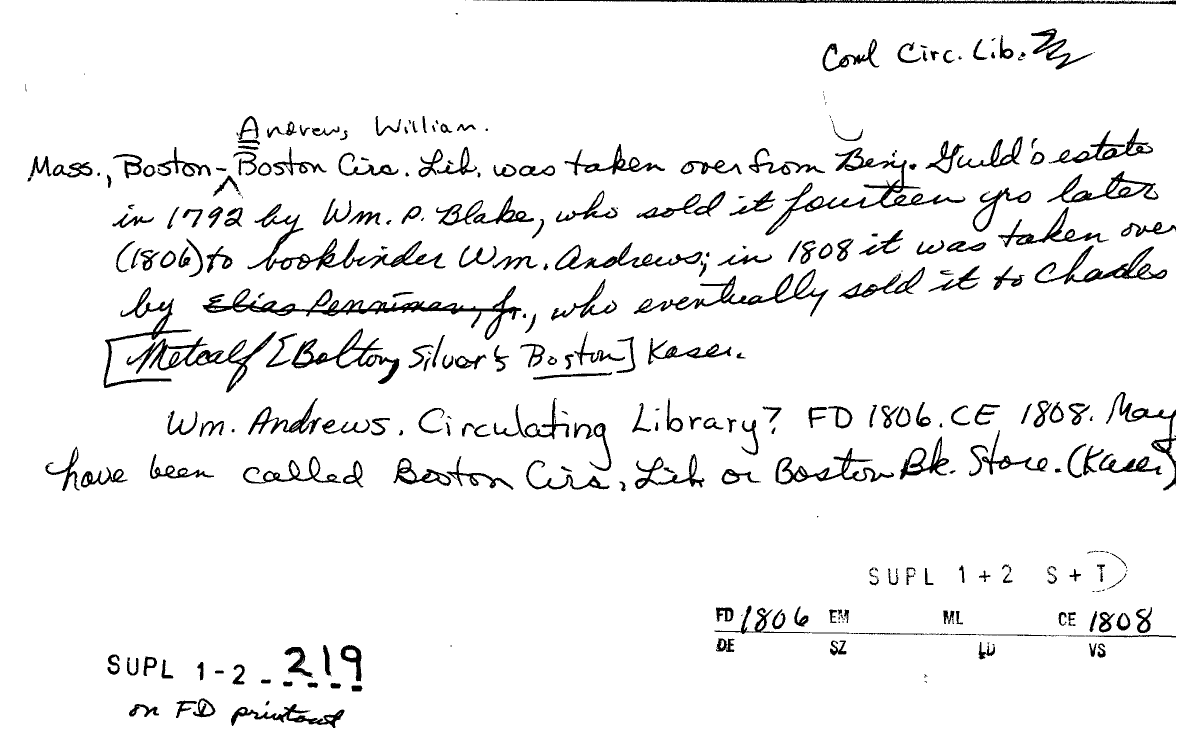 Coml Circ. Lib.
Andrews, William.
Mass., Boston-Boston Circ. Lib. was taken over from Benj. Guild's estate
in 1792 by Wm. P. Blake, who sold it fourteen yrs later
(1806) to bookbinder Wm. Andrews; in 1808 it was taken over
by Elias Penniman, Jr., who eventually sold it to Charles
[Metcalf [Bolton, Silver's Boston] Kaser.
Wm. Andrews. Circulating Library? FD 1806. CE 1808. May
have been called Boston Circ. Lib or Boston Bk. Store. (Kaser)
SUPL 1+2 S+T
FD 1806 EM ML CE 1808
DE SZ LD VS
SUPL 1-2 - 219
on FD printout